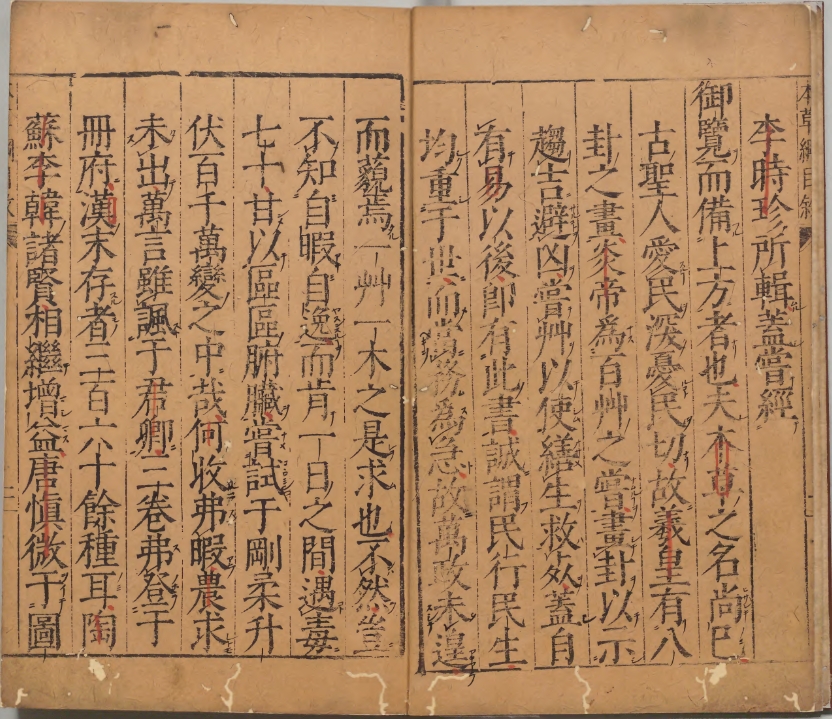 李時珍所輯蓋嘗經
御覽而備上方者也夫本草之名尚巳
古聖人愛民深憂民切故羲皇有八
封之畫炎帝為百艸之嘗畫封以示
趨吉避凶嘗艸以使繕生救夭蓋自
有易以後卽有此書誠謂民行民生
均重于世而當務為急故萬政未遑
而藐焉一艸一木之是求也不然豈
不知自暇自逸而肯一日之間遇毒
七十甘以區區腑臟嘗試于剛柔升
伏百千萬變之中哉何收弗暇農求
未出萬言雖諷于君卿三卷弗登于
冊府漢末存者三百六十餘種耳陶
蘇李韓諸賢相繼增益唐愼微于圖